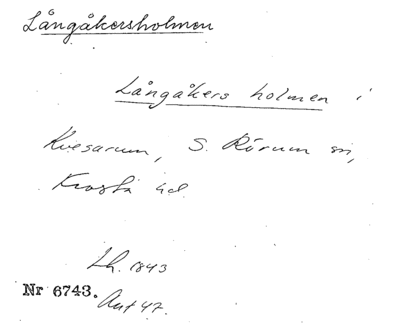 Långåkersholmen
Långåkers holmen i
Kvesarum, S. Rörum sn,
Frosta hd
Lh. 1843
Nr 6743.
Ant 47.